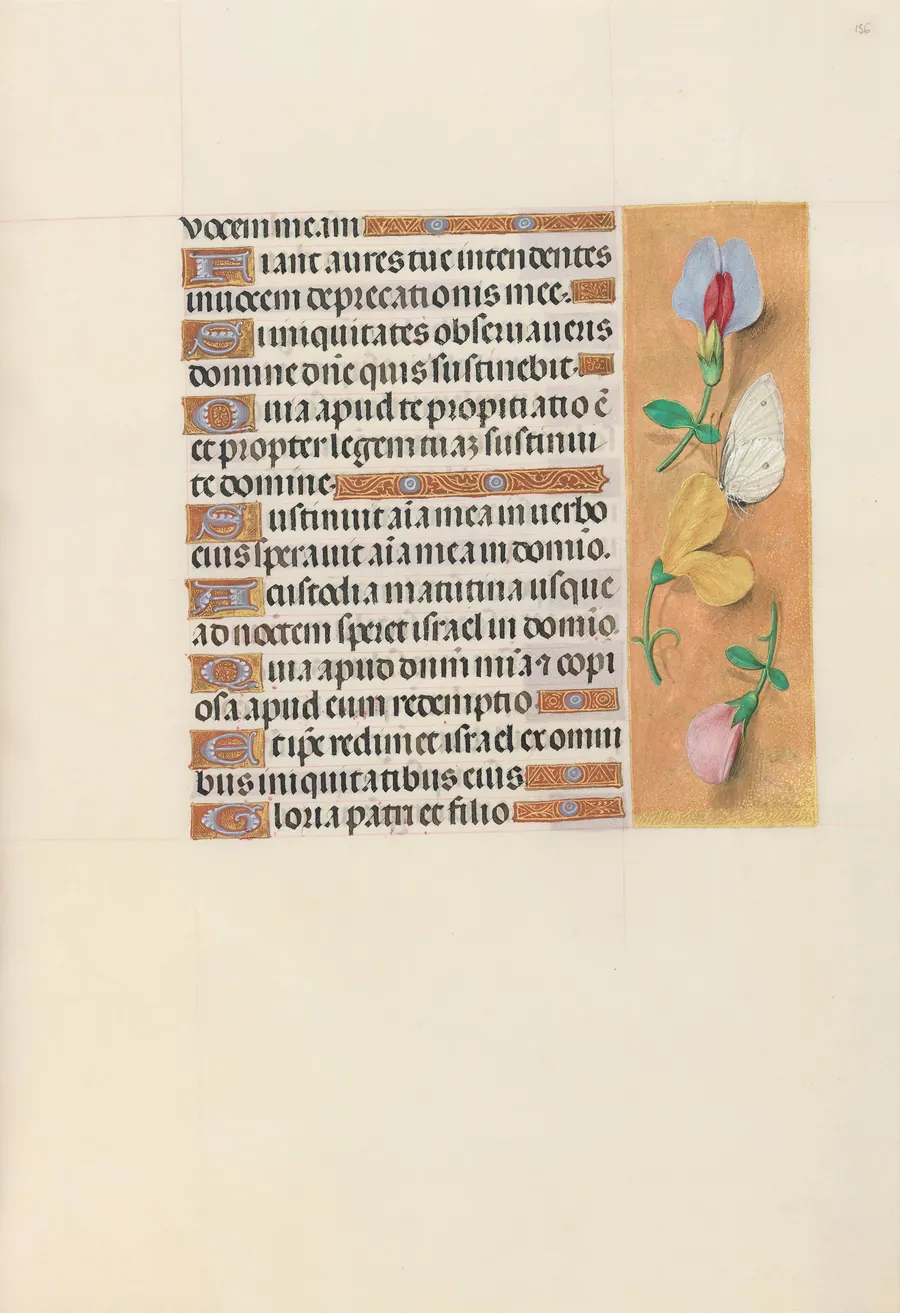 156
vocem meam
Fiant aures tue intendentes
in uocem deprecationis mee.
Si iniquitates obseruaueris
domine dñe quis sustinebit.
Quia apud te propitiatio ē
et propter legem tuaꝫ sustinui
te domine.
Sustinuit aīa mea in uerbo
eius sperauit aīa mea in domīo.
A custodia matutina usque
ad noctem speret israel in domīo.
Quia apud dnm̄ mīa ⁊ copi
osa apud eum redemptio
Et ip̄e redimet israel ex omni
bus iniquitatibus eius
Gloria patri et filio.